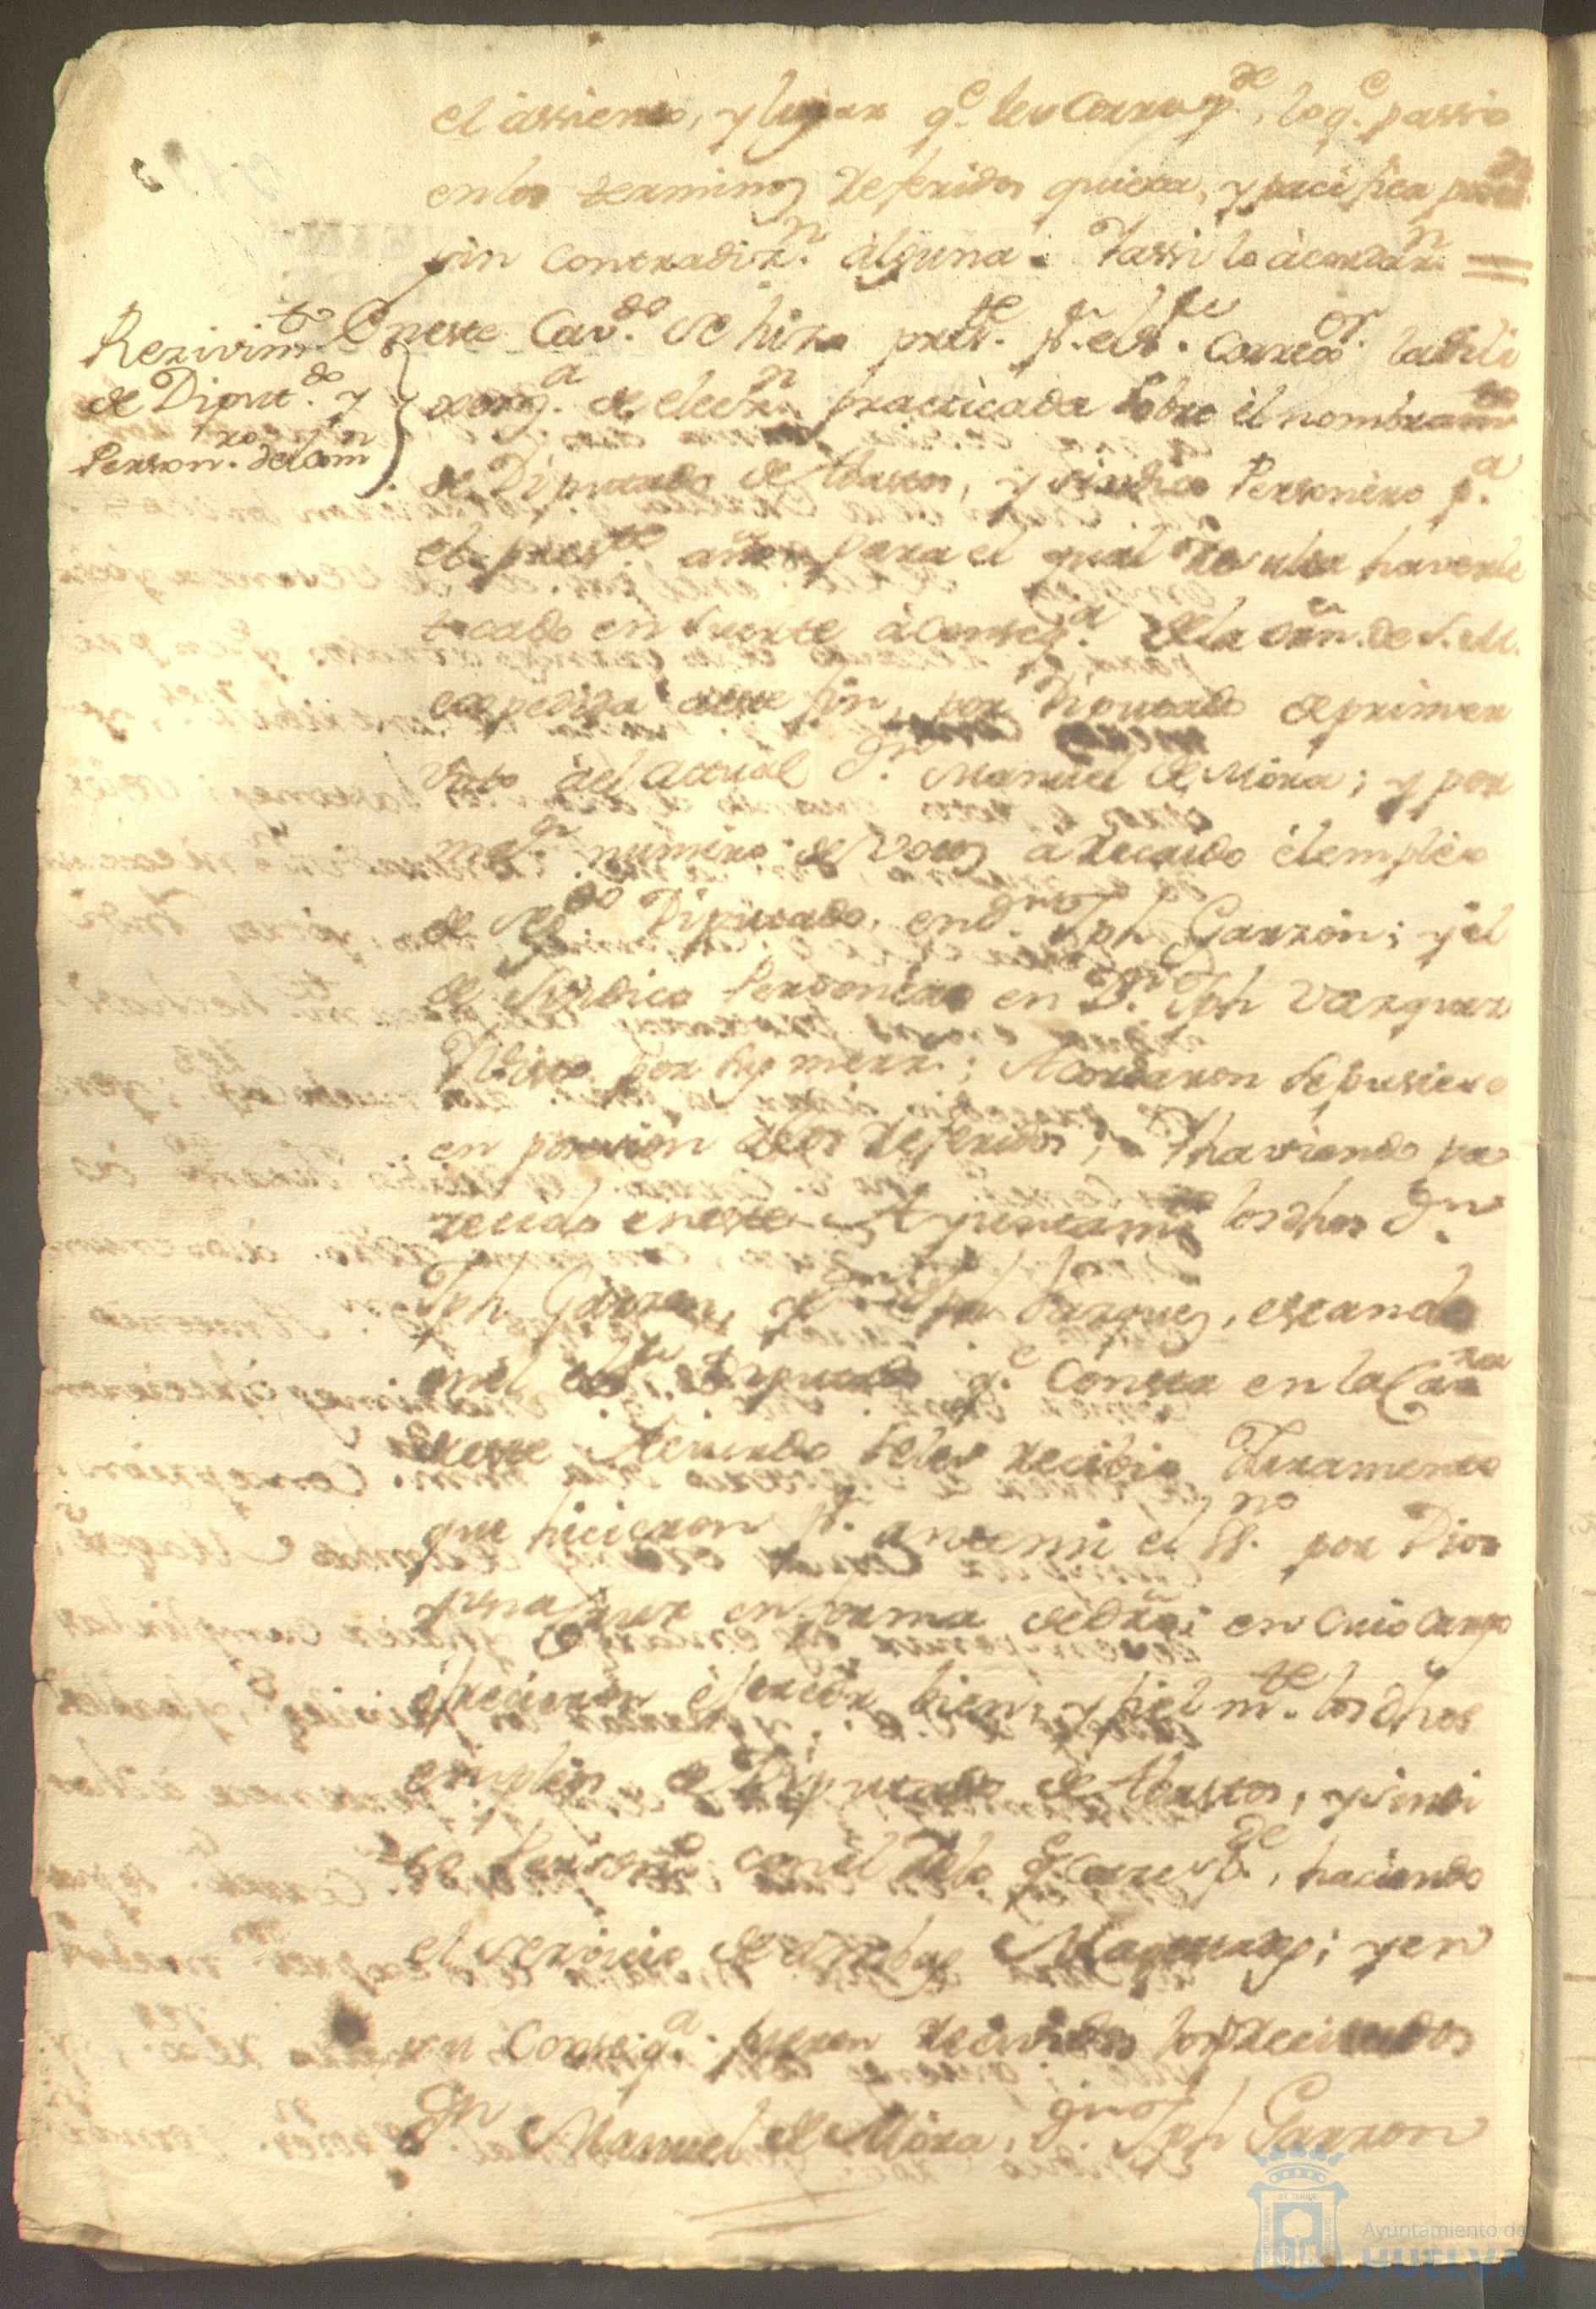 el assiento, y lugar q.e les corresp.de, lo q.e passó
en los terminos referidos quieta, y pacifica
sin contradiz.n alguna. Yassi lo acordar.n =
Rezivim.to
de Diput.do y
Person.ro del Com.n
En este Cav.do se hizo pres.te p.r el s.r Correx.or la dili
xenz.a de elecz.n practicada sobre el nombram.to
de Diputado de Abastos, y sindico Personero p.a
el pres.te año para el qual resulta haverle
tocado en suerte à conseq.a de la orn. de S.M.
expedida a este fin, por Diputado de primer
voto al actual D.n Manuel de Mora; y por
may.r numero de votos à recaido el empleo
de seg.do Diputado, en D.n Jph Garzon; y el
de Sindico Personero en D.n Jph Vazquez
Acordaron se pusiera
en posesion a los referidos; Y haviendo pa
recido en este Ayuntami.to los dhos D.n
Jph Garzon, y D.n Jph Vazquez, estando
en el Diputado q.e consta en la Cav.za
de este Acuerdo se les recibio Juramento
que hicieron p.r antemi el Ss.no por Dios
y una cruz en forma de dro; en cuio cargo
ofrecieron exercer bien, y fielm.te los dhos
empleos de Diputado de Abastos, y sindi
co Personero con el de lo q.e corresp.de, haciendo
el servicio de ambas Magestades; y en
su conseq.a fueron recividos los
D.n Manuel de Mora, D.n Jph Garzon
Ayuntamiento de
HUELVA